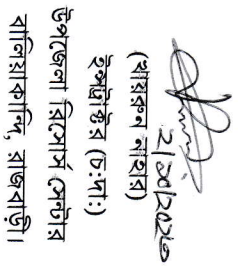 ২/১০/২০২৩
(খায়রুন নাহার)
ইন্সট্রাক্টর (চ:দা:)
উপজেলা রিসোর্স সেন্টার
বালিয়াকান্দি, রাজবাড়ী।